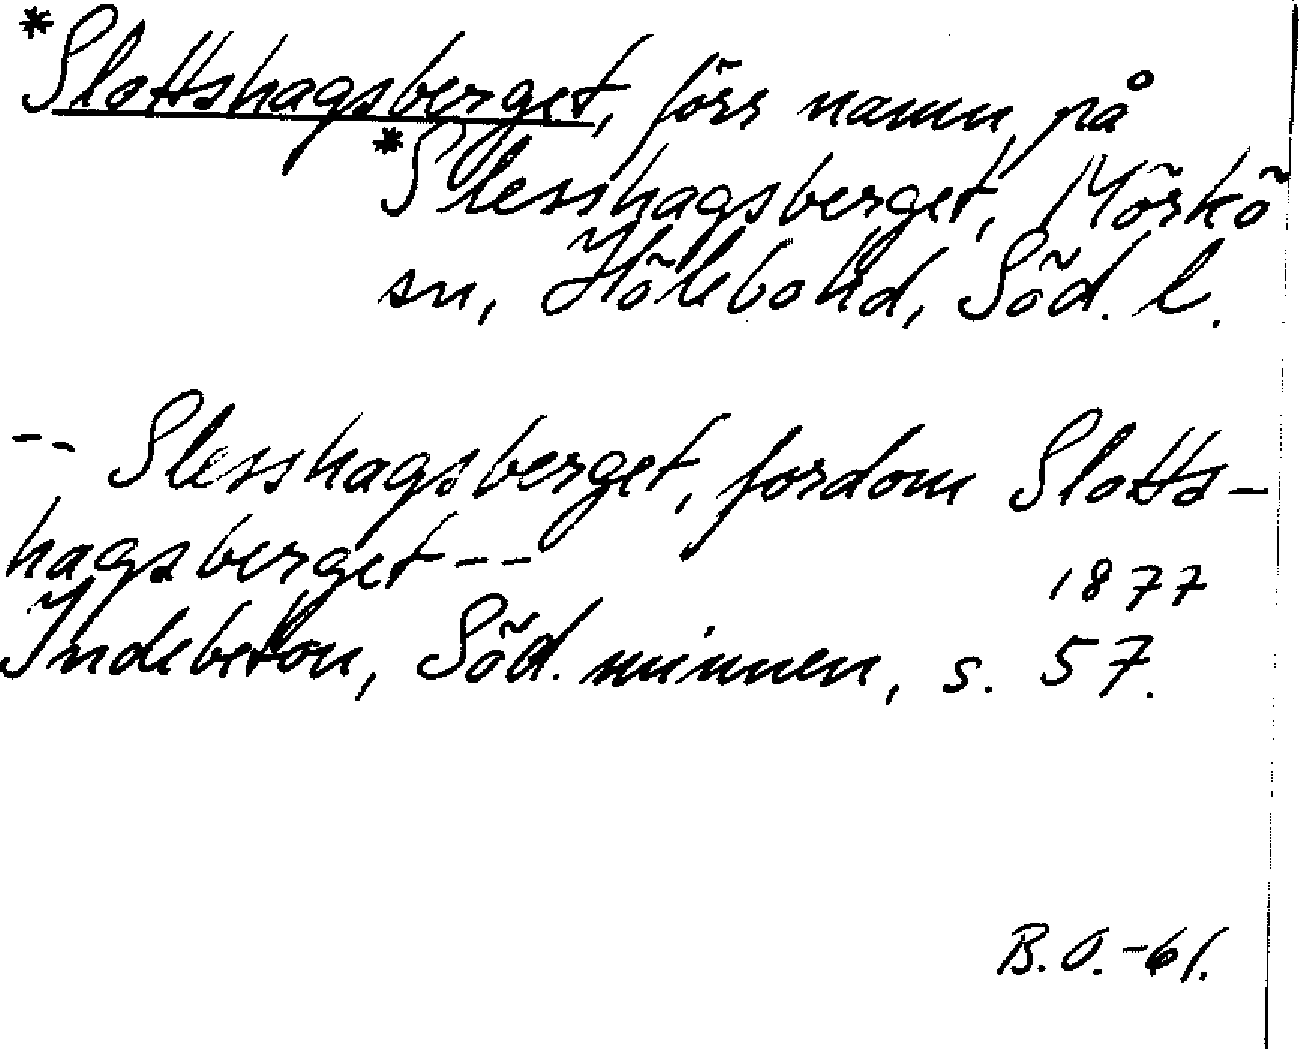 *Slottshagsberget, förr namn på
*Slesshagsberget, Mörkö
sn, Hölebo hd, Söd. l.
-- Slesshagsberget, fordom Slotts-
hagsberget -- 1877
Indebetou, Söd. minnen, s. 57.
B.O.-61.